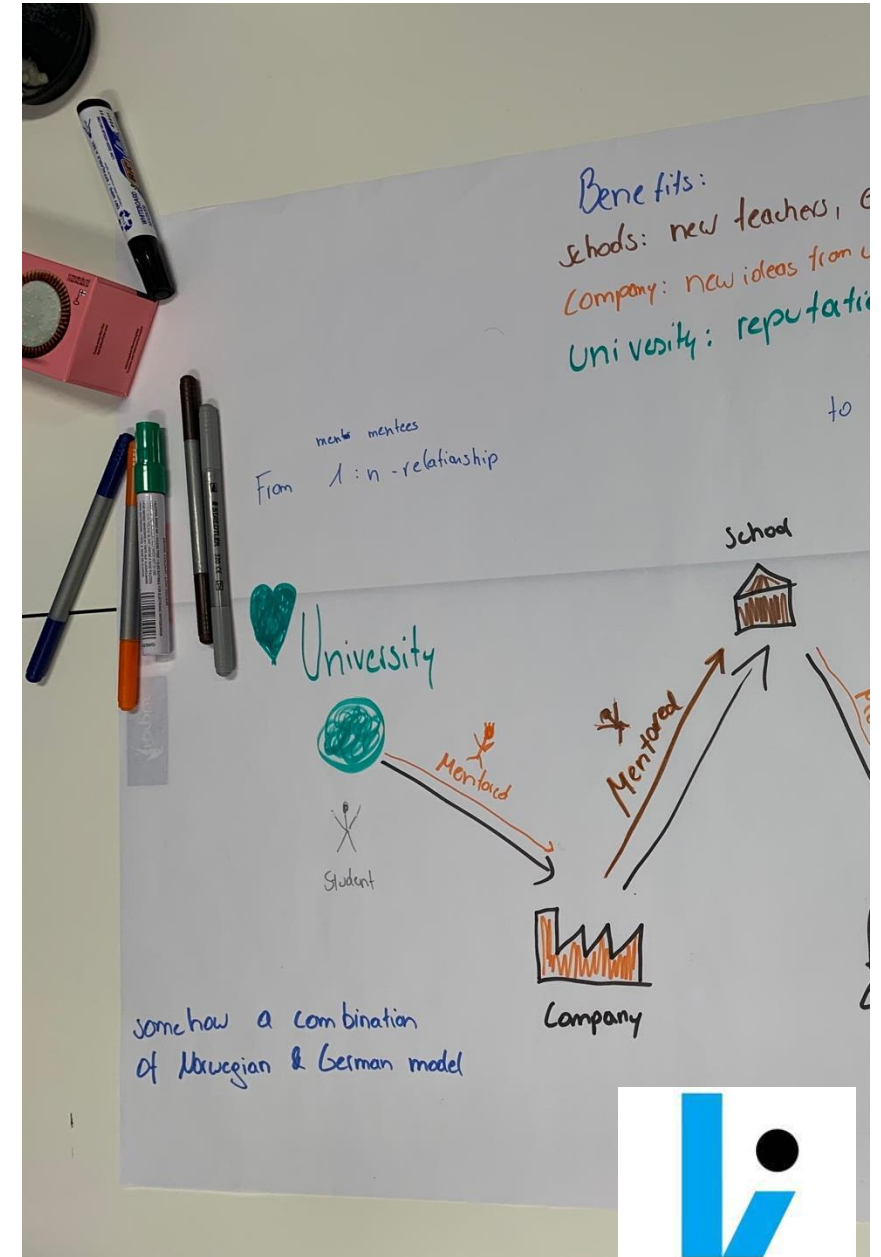 Benefits:
schools: new teachers,
Company: new ideas from
Univesity: reputatio
to
mentees
From 1:n-relationship
School
University
Mentored
Mentored
Student
Company
somehow a combination
of Norwegian & German model